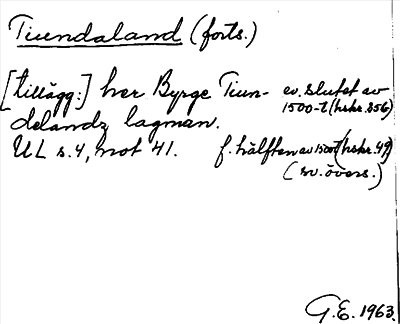 Tiundaland (forts.)
[tillägg:] her Byrge Tiun- ev. slutet av
1500-t (hskr. 356)
delandz lagman.
UL s. 4, not 41. f. hälften av 1500t (hskr. 49)
(sv. övers.)
G.E. 1963.